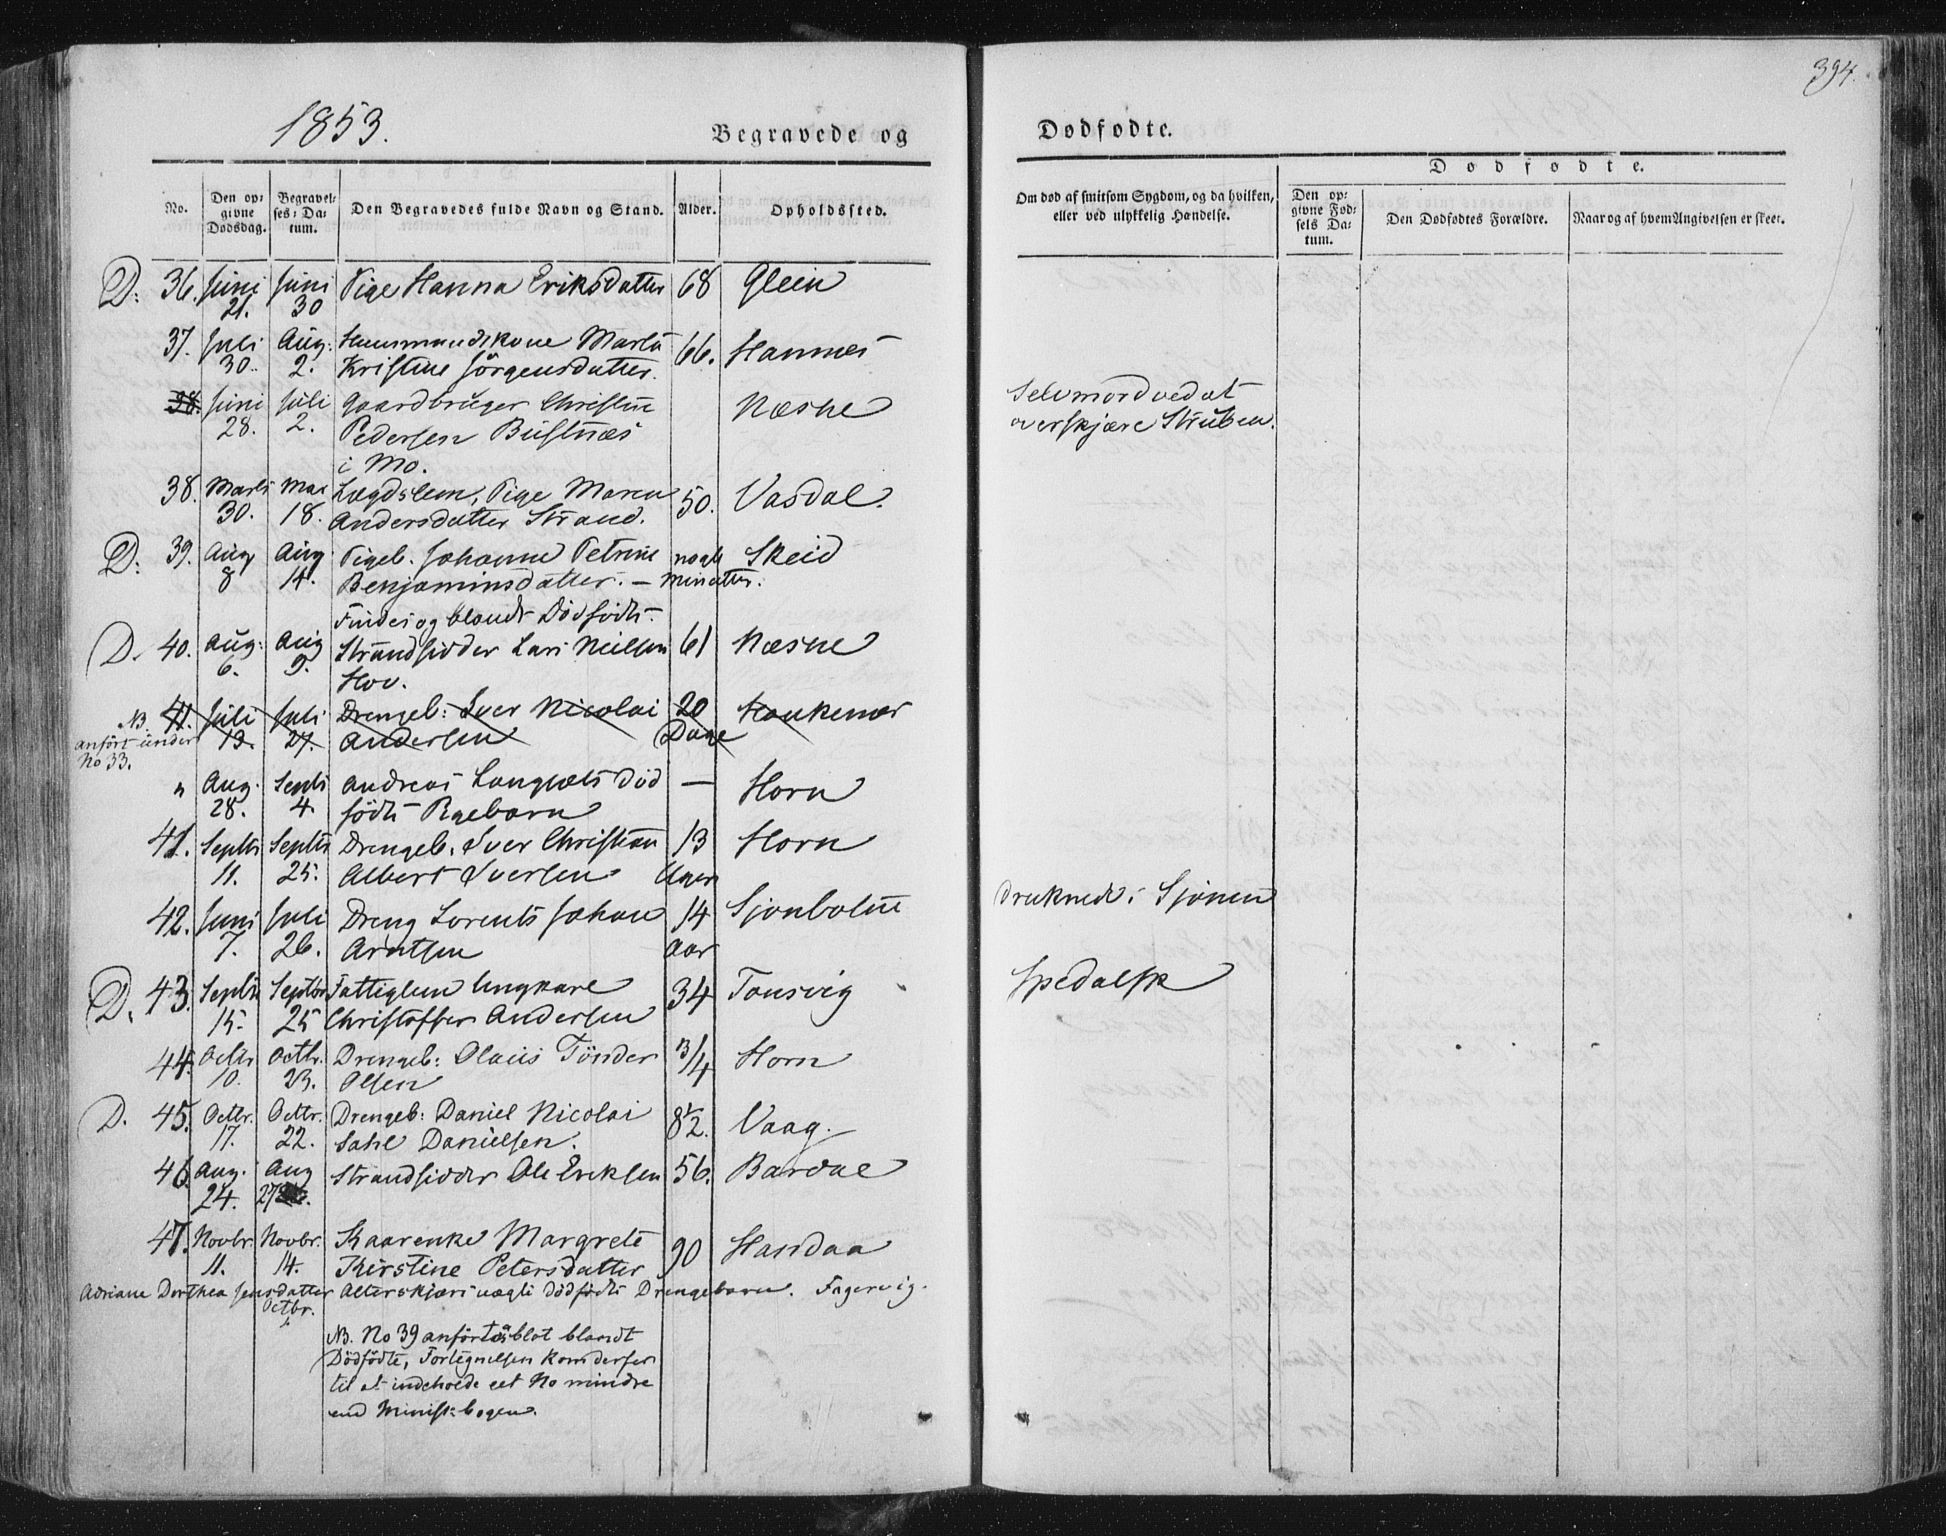 394.
1853.
Begravede og
Dødfødte.
No.
Den op-
givne
Dødsdag.
Begravel-
ses-Da-
tum.
Den Begravedes fulde Navn og Stand.
Alder.
Opholdssted.
Om død af smitsom Sygdom, og da hvilken,
eller ved ulykkelig Hændelse.
Dødfødte.
Den op-
givne Fød-
sels Da-
tum.
Den Dødfødtes Forældre.
Naar og af hvem Angivelsen er skeet.
D: 36. Juni Juni Pige Hanna Eriksdatter 68 Glein
21. 30
37. Juli Aug: Huusmandskone Marta 66. Hannes
30. 2. Kristine Jørgensdatter.
38. Juni Juli Gaardbruger Christian Næsne Selvmord ved at
28. 2. Pedersen Bustnæs overskjære Struben.
i Mo.
38. Marts Mai Lægdslem, Pige Maren 50. Vasdal.
30. 18. Andersdatter Strand.
D: 39. Aug Aug Pigeb. Johanne Petrine nogle Skeid
8 14. Benjaminsdatter. — minutter.
Findes og blandt Dødfødte.
D. 40. Aug: Aug Strandsidder Lars Neilsen 61 Næsne
6. 9. Hov.
NB. 41. Juli Juli Drengeb: Iver Nicolai 20
anført under 13. 27. Andersen Dage
No 33.
" Aug. Septb Andreas Langsæts død — Horn
28. 4. født Pigebarn
41. Septbr Septbr Drengeb. Iver Christian 13 Horn
11. 25. Albert Iversen Uger
42. Juni Juli Dreng Lorents Johan 14 Sjonbotn druknede i Sjønen
7. 26. Arntsen Aar
D. 43. Septbr Septbr Fattiglem Ungkare 34 Tonsvig Spedalsk
15. 25 Christoffer Andersen
44. Octbr Octbr. Drengeb: Olaus Tønder 3/4 Horn
10. 23. Olsen
D. 45. Octbr. Octbr. Drengeb: Daniel Nicolai 8 1/2. Vaag.
17. 22. Dahl Danielsen.
46. Aug. Aug Strandsidder Ole Eriksen 56. Bardal
24. 27
47. Novbr. Novbr. Kaarenke Margrete 90 Handaa
11. 14. Kirstine Petersdatter
Adriane Dorthea Jensdatter Alterskjærs uægte dødfødte Drengebarn. Fagervig.
Octbr.
NB. No 39 anførtes blot blandt
Dødfødte, Fortegnelsen kom derfor
til at indeholde eet No mindre
end Minist: bogen.